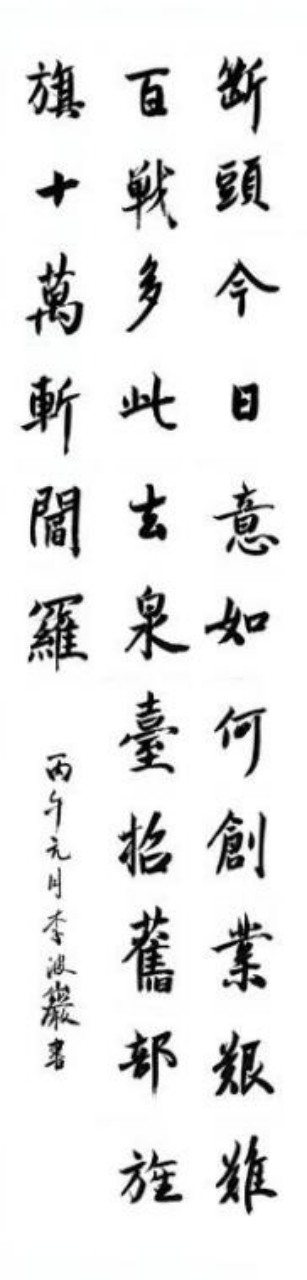 斷頭今日意如何創業艱難
百戰多此去泉臺招舊部旌
旗十萬斬閻羅
丙午元月李波巖書